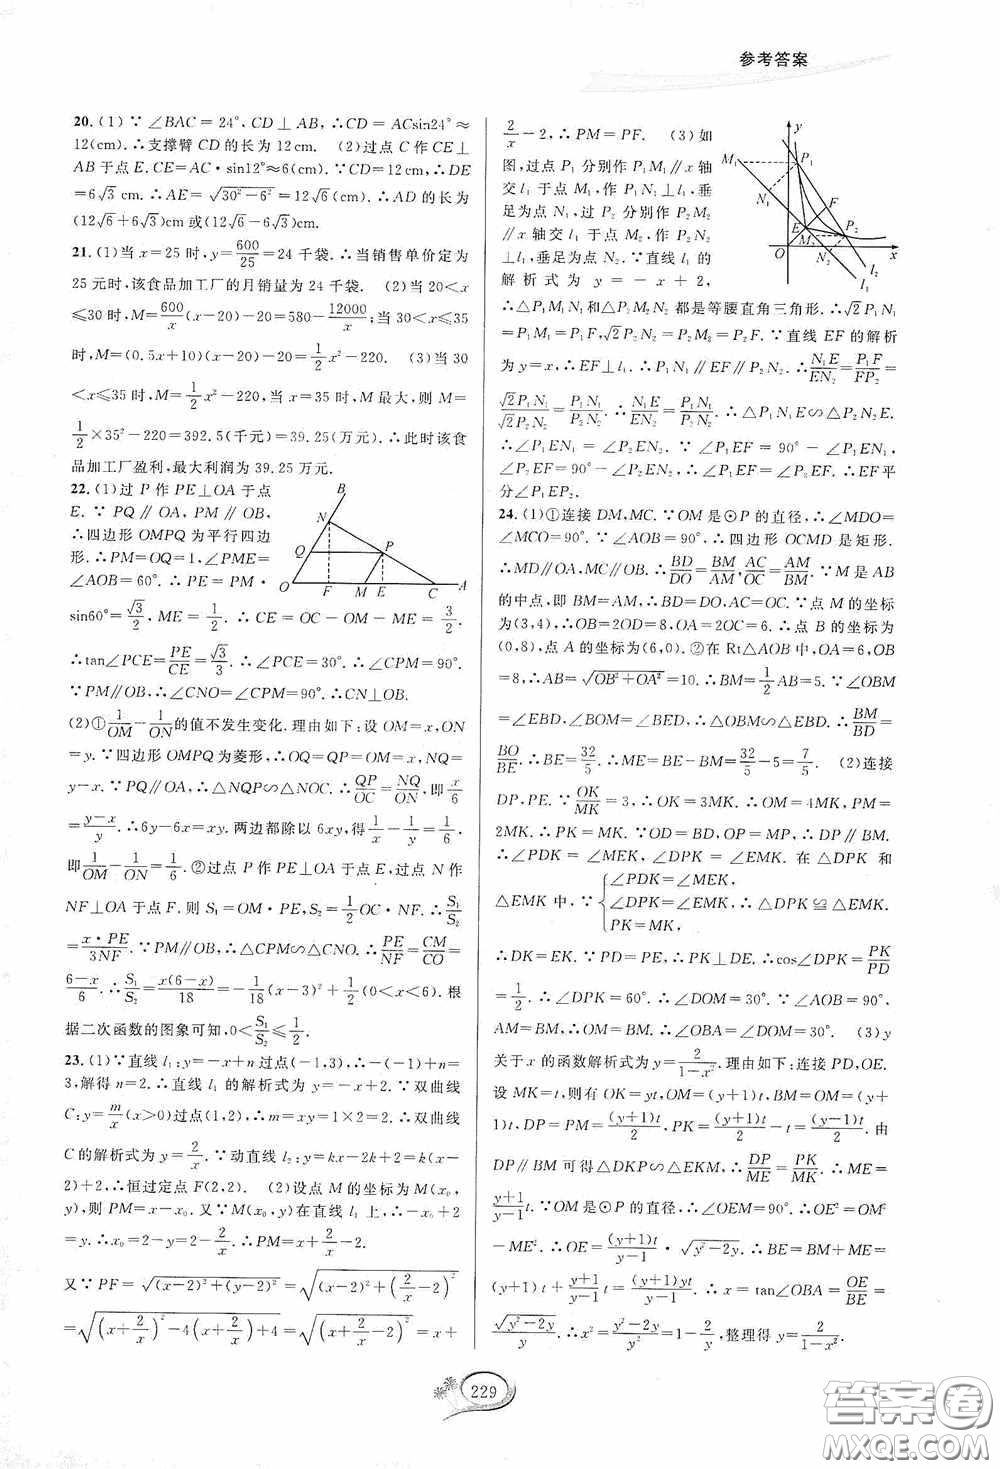 参考答案
20. (1) ∵ ∠BAC=24°, CD⊥AB, ∴CD=ACsin24°≈
12(cm). ∴支撑臂 CD 的长为 12 cm. (2)过点 C 作 CE⊥
AB 于点 E. CE=AC·sin12°≈6(cm) ∵CD=12 cm, ∴DE
=6√3 cm. ∴AE=√(30²-6²)=12√6 cm. ∴AD 的长为
(12√6+6√3)cm 或(12√6-6√3)cm.
21. (1)当 x=25 时, y=600/25=24 千袋. ∴当销售单价定为
25 元时, 该食品加工厂的月销量为 24 千袋. (2)当 20<x
≤30 时, M=600/x(x-20)-20=580-12000/x; 当 30<x≤35
时, M=(0.5x+10)(x-20)-20=1/2x²-220. (3)当 30
<x≤35 时, M=1/2x²-220, 当 x=35 时, M 最大, 则 M=
1/2×35²-220=392.5(千元)=39.25(万元). ∴此时该食
品加工厂盈利, 最大利润为 39.25 万元.
22. (1)过 P 作 PE⊥OA 于点
E. ∵ PQ∥OA, PM∥OB,
∴四边形 OMPQ 为平行四边
形. ∴PM=OQ=1, ∠PME=
∠AOB=60°. ∴PE=PM·
sin60°=√3/2, ME=1/2. ∴CE=OC-OM-ME=3/2.
∴tan∠PCE=PE/CE=√3/3. ∴∠PCE=30°. ∴∠CPM=90°.
∵PM∥OB, ∴∠CNO=∠CPM=90°. ∴CN⊥OB.
(2)①1/OM-1/ON的值不发生变化. 理由如下: 设 OM=x, ON
=y. ∵四边形 OMPQ 为菱形, ∴OQ=QP=OM=x, NQ=
y-x. ∵PQ∥OA, ∴△NQP∽△NOC. ∴QP/OC=NQ/ON, 即x/6
=(y-x)/y. ∴6y-6x=xy. 两边都除以 6xy, 得1/x-1/y=1/6,
即1/OM-1/ON=1/6. ②过点 P 作 PE⊥OA 于点 E, 过点 N 作
NF⊥OA 于点 F. 则 S₁=OM·PE, S₂=1/2OC·NF. ∴S₁/S₂
=x·PE/3NF. ∵PM∥OB, ∴△CPM∽△CNO. ∴PE/NF=CM/CO=
(6-x)/6. ∴S₁/S₂=x(6-x)/18=-1/18(x-3)²+1/2(0<x<6). 根
据二次函数的图象可知, 0<S₁/S₂≤1/2.
23. (1)∵直线 l₁: y=-x+n 过点(-1,3), ∴-(-1)+n=
3, 解得 n=2. ∴直线 l₁ 的解析式为 y=-x+2. ∵双曲线
C: y=m/x(x>0)过点(1,2), ∴m=xy=1×2=2. ∴双曲线
C 的解析式为 y=2/x. ∵动直线 l₂: y=kx-2k+2=k(x
-2)+2, ∴恒过定点 F(2,2). (2)设点 M 的坐标为 M(x₀,
y), 则 PM=x-x₀. 又∵M(x₀,y)在直线 l₁ 上, ∴-x₀+2
=y. ∴x₀=2-y=2-2/x. ∴PM=x+2/x-2.
又∵PF=√((x-2)²+(y-2)²)=√((x-2)²+(2/x-2)²)
=√((x+2/x)²-4(x+2/x)+4)=√((x+2/x-2)²)=x+
2/x-2, ∴PM=PF. (3)如
图, 过点 P₁ 分别作 P₁M₁∥x 轴
交 l₁ 于点 M₁, 作 P₁N₁⊥l₁, 垂
足为点 N₁, 过 P₂ 分别作 P₂M₂
∥x 轴交 l₁ 于点 M₂, 作 P₂N₂
⊥l₁, 垂足为点 N₂. ∵直线 l₁ 的
解析式为 y=-x+2,
∴△P₁M₁N₁和△P₂M₂N₂ 都是等腰直角三角形. ∴√2P₁N₁
=P₁M₁=P₁F, √2P₂N₂=P₂M₂=P₂F. ∵直线 EF 的解析
为 y=x, ∴EF⊥l₁. ∴P₁N₁∥EF∥P₂N₂. ∴N₁E/EN₂=P₁F/FP₂=
√2P₁N₁/√2P₂N₂=P₁N₁/P₂N₂. ∴N₁E/EN₂=P₁N₁/P₂N₂. ∴△P₁N₁E∽△P₂N₂E.
∴∠P₁EN₁=∠P₂EN₂. ∵∠P₁EF=90°-∠P₁EN₁,
∠P₂EF=90°-∠P₂EN₂, ∴∠P₁EF=∠P₂EF. ∴EF平
分∠P₁EP₂.
24. (1)①连接 DM, MC. ∵OM 是⊙P 的直径, ∴∠MDO=
∠MCO=90°. ∵∠AOB=90°, ∴四边形 OCMD 是矩形.
∴MD∥OA, MC∥OB. ∴BD/DO=BM/AM, AC/OC=AM/BM. ∵M 是 AB
的中点, 即 BM=AM, ∴BD=DO, AC=OC. ∵点 M 的坐标
为(3,4), ∴OB=2OD=8, OA=2OC=6. ∴点 B 的坐标为
(0,8), 点 A 的坐标为(6,0). ②在 Rt△AOB 中, OA=6, OB
=8, ∴AB=√(OB²+OA²)=10. ∴BM=1/2AB=5. ∵∠OBM
=∠EBD, ∠BOM=∠BED, ∴△OBM∽△EBD. ∴BM/BD=
BO/BE. ∴BE=32/5. ∴ME=BE-BM=32/5-5=7/5. (2)连接
DP, PE. ∵OK/MK=3, ∴OK=3MK. ∴OM=4MK, PM=
2MK. ∴PK=MK. ∵OD=BD, OP=MP, ∴DP∥BM.
∴∠PDK=∠MEK, ∠DPK=∠EMK. 在△DPK 和
△EMK 中, ∵{∠PDK=∠MEK,
∠DPK=∠EMK, ∴△DPK≌△EMK.
PK=MK,
∴DK=EK. ∵PD=PE, ∴PK⊥DE. ∴cos∠DPK=PK/PD
=1/2. ∴∠DPK=60°. ∴∠DOM=30°. ∵∠AOB=90°,
AM=BM, ∴OM=BM. ∴∠OBA=∠DOM=30°. (3)y
关于 x 的函数解析式为 y=2/(1-x²). 理由如下: 连接 PD, OE.
设 MK=t, 则 OK=yt, OM=(y+1)t, BM=OM=(y+
1)t, DP=PM=(y+1)t/2, PK=(y+1)t/2-t=(y-1)t/2. 由
DP∥BM 可得△DKP∽△EKM, ∴DP/ME=PK/MK. ∴ME=
(y+1)/(y-1)t. ∵OM 是⊙P 的直径, ∴∠OEM=90°. ∴OE²=OM²
-ME². ∴OE=(y+1)t/(y-1)·√(y²-2y). ∴BE=BM+ME=
(y+1)t+(y+1)/(y-1)t=(y+1)yt/(y-1). ∴x=tan∠OBA=OE/BE=
√(y²-2y)/y. ∴x²=(y²-2y)/y²=1-2/y, 整理得 y=2/(1-x²).
B
N
Q
P
O
F
M
E
C
A
y
M₁
P₁
N₁
F
E
P₂
M₂
O
N₂
x
l₂
l₁
229
答案卷
MXQE.COM